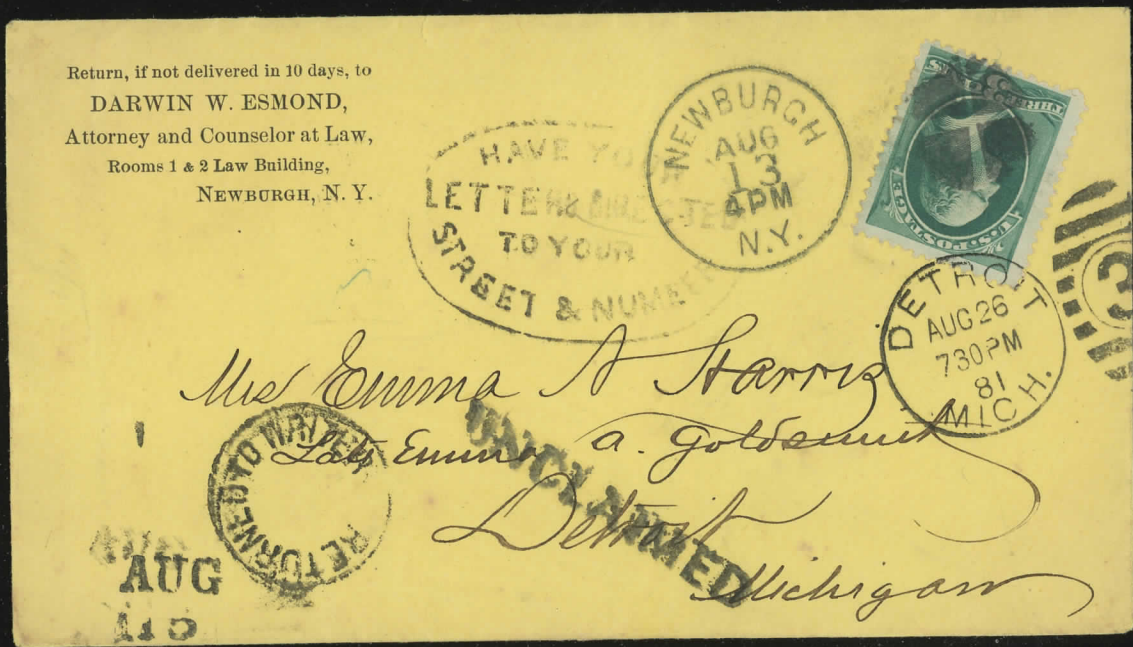 Return, if not delivered in 10 days, to
DARWIN W. ESMOND,
Attorney and Counselor at Law,
Rooms 1 & 2 Law Building,
NEWBURGH, N. Y.
HAVE YO
LETTERS DIRECTED
TO YOUR
STREET & NUMBER
NEWBURGH
AUG
13
4PM
N.Y.
THREE
U.S. POSTAGE
DETROIT
AUG 26
730PM
81
MICH.
3
Mrs Emma A Harris
Late Emma a. Goldsmith
Detroit
Michigan
UNCLAIMED
RETURNED TO WRITER
AUG